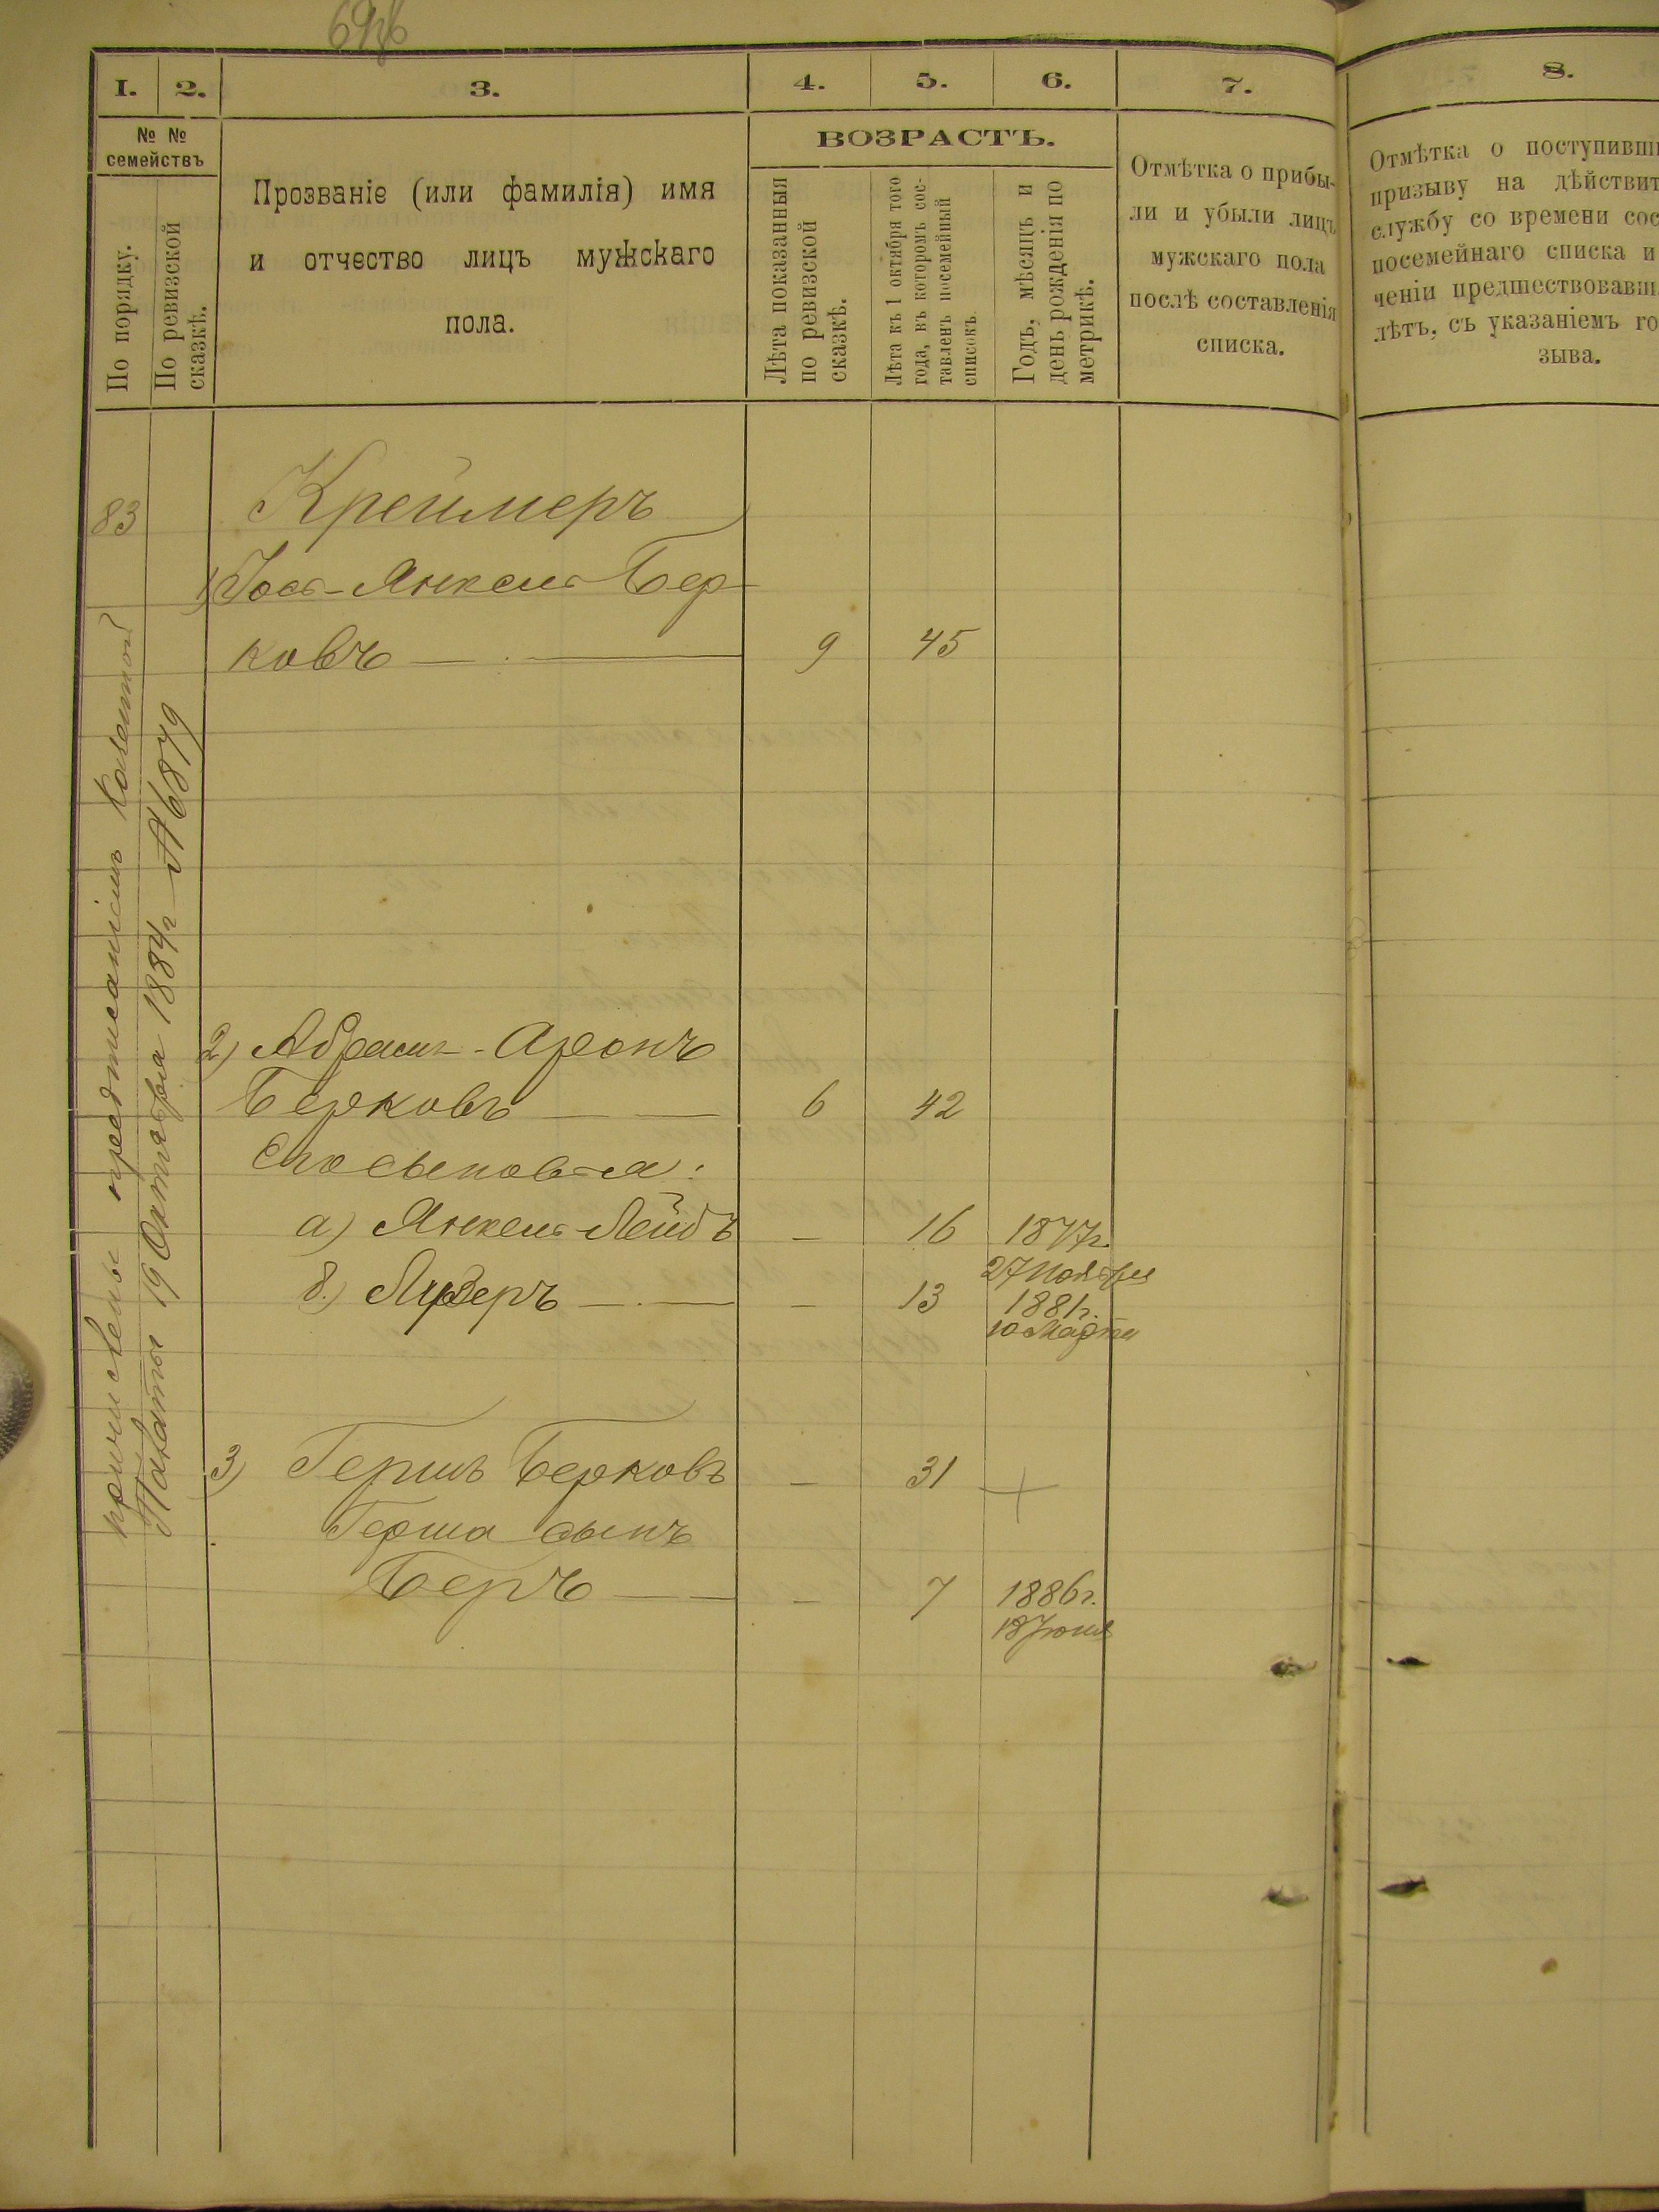 I.
2.
3.
4.
5.
6.
7.
8.
№ №
семействъ
По порядку.
По ревизской
сказкѣ.
Прозваніе (или фамилія) имя
и отчество лицъ мужскаго
пола.
ВОЗРАСТЪ.
Лѣта показанныя
по ревизской
сказкѣ.
Лѣта къ 1 октября того
года, въ которомъ сос-
тавленъ посемейный
списокъ.
Годъ, мѣсяцъ и
день рожденія по
метрикѣ.
Отмѣтка о прибы-
ли и убыли лицъ
мужскаго пола
послѣ составленія
списка.
Отмѣтка о поступивши
призыву на дѣйствит
службу со времени сос
посемейнаго списка и
ченіи предшествовавш
лѣтъ, съ указаніемъ го
зыва.
83
Креймеръ
1) Іось-Янкель Бер-
ковъ — 9 45
2) Абрамъ-Аронъ
Берковъ — 6 42
Его сыновья:
а) Янкель Лейбъ — 16 1877г.
27 Ноября
б) Лузеръ — — 13 1881г.
10 Марта
3) Гершъ Берковъ — 31
Герша сынъ
Беръ — — 7 1886г.
18 Іюня
причислены предписаніемъ Казенной
Палаты 19 Октября 1884г №6879